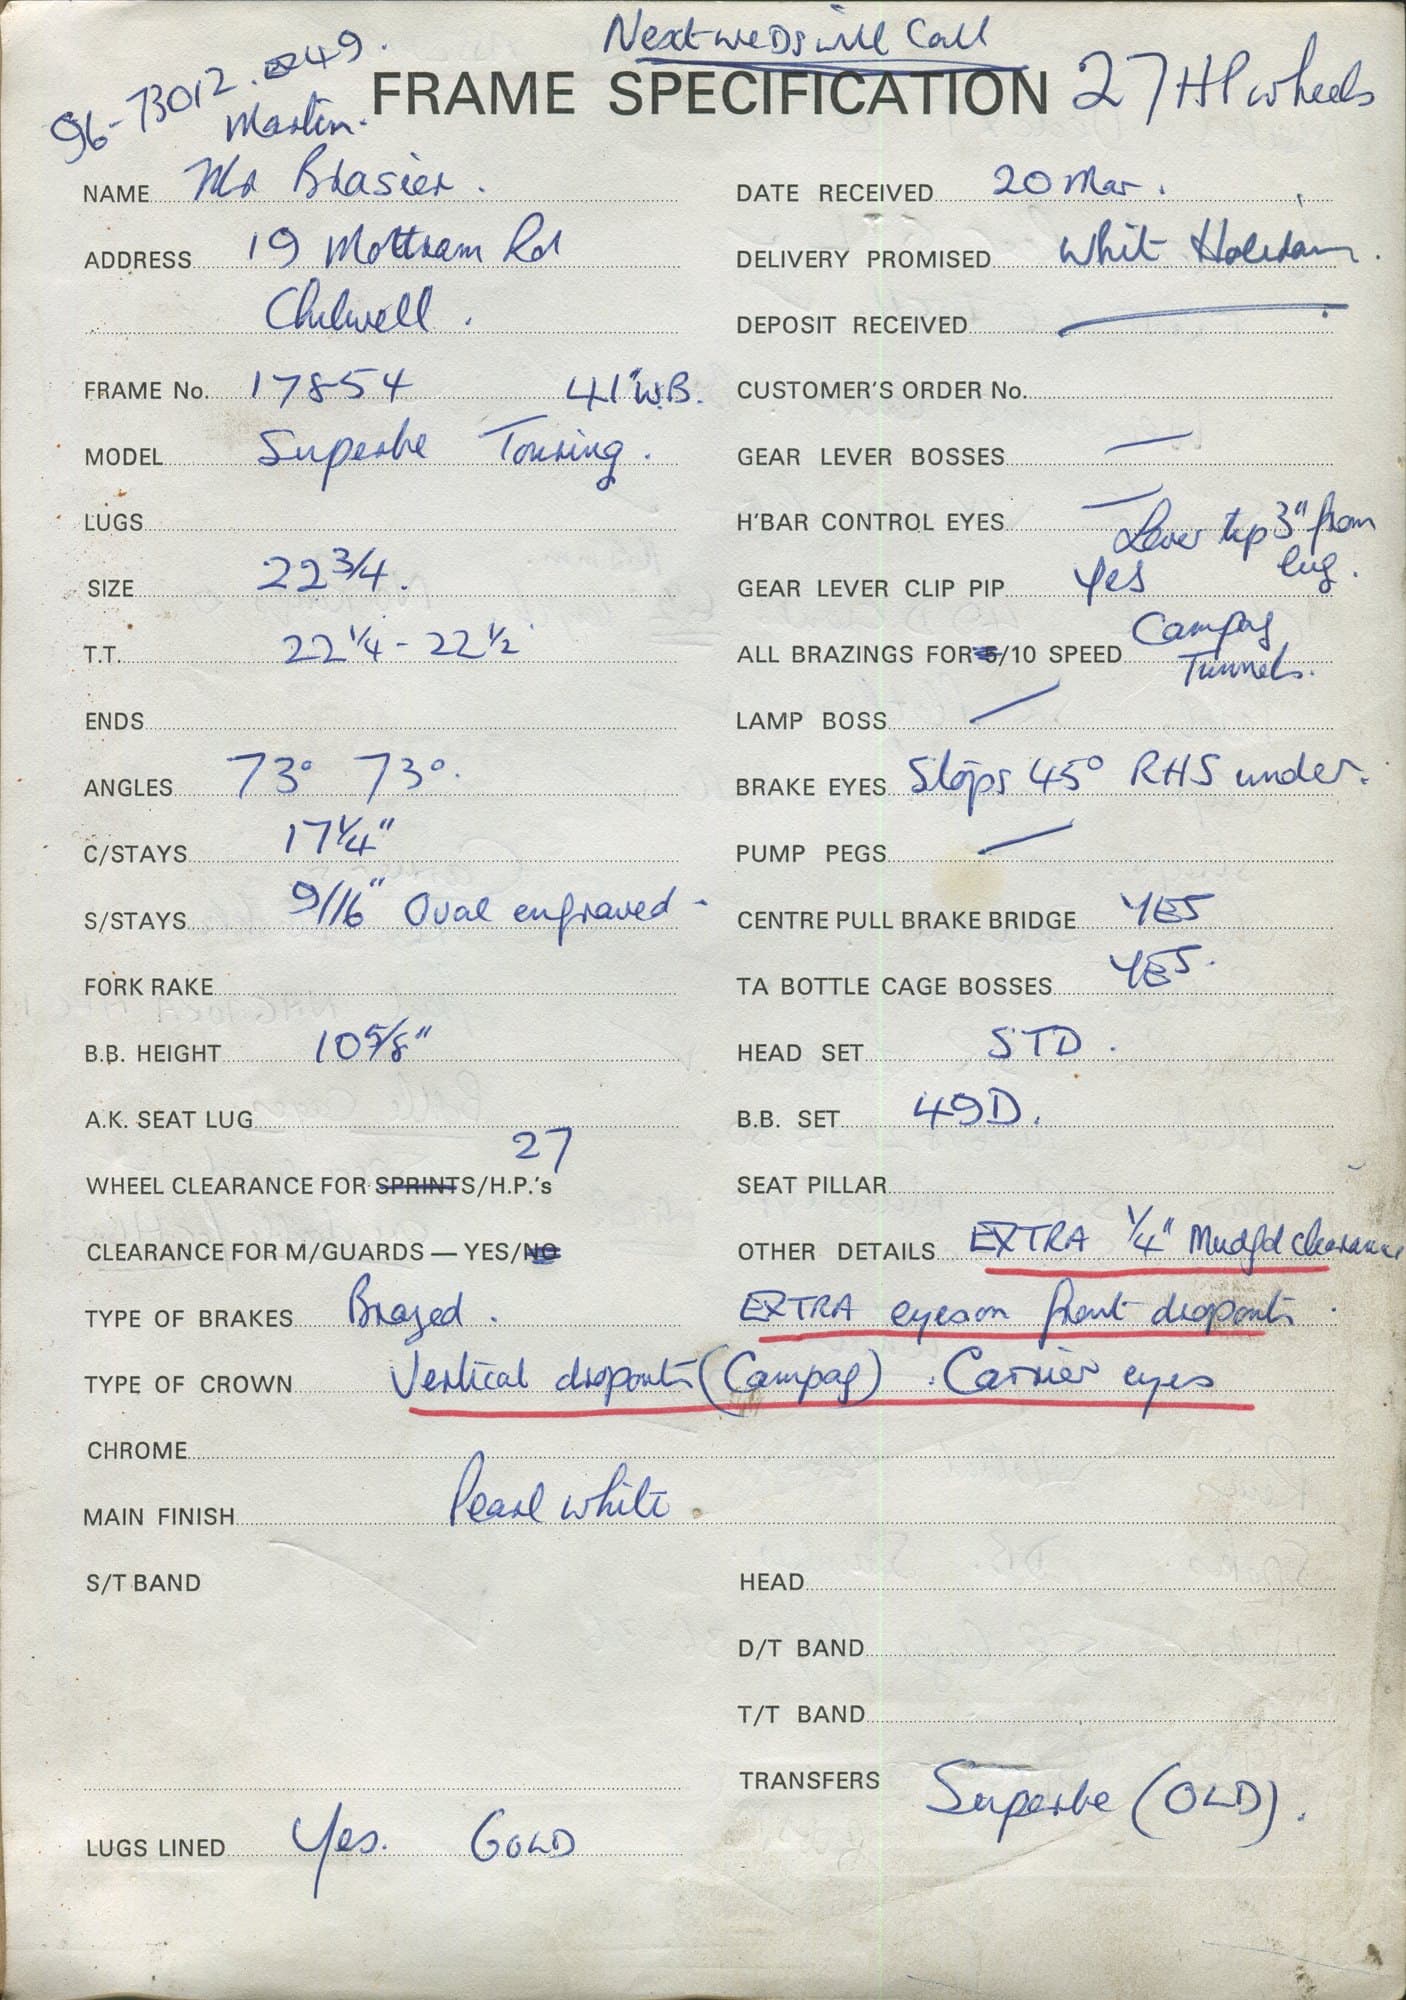 Next weds will Call
96-73012. 49.
Martin.
FRAME SPECIFICATION 27 HP wheels
NAME Mr Brasier.
ADDRESS 19 Mottram Rd
Chilwell.
FRAME No. 17854 41" W.B.
MODEL Superbe Touring.
LUGS
SIZE 22 3/4.
T.T. 22 1/4 - 22 1/2
ENDS
ANGLES 73° 73°.
C/STAYS 17 1/4"
S/STAYS 9/16" Oval engraved -
FORK RAKE
B.B. HEIGHT 10 5/8"
A.K. SEAT LUG
27
WHEEL CLEARANCE FOR SPRINTS/H.P.'s
CLEARANCE FOR M/GUARDS — YES/NO
TYPE OF BRAKES Brazed.
TYPE OF CROWN Vertical dropouts (Campag). Carrier eyes
CHROME
MAIN FINISH Pearl white
S/T BAND
LUGS LINED Yes. GOLD
DATE RECEIVED 20 Mar.
DELIVERY PROMISED Whit
DEPOSIT RECEIVED
CUSTOMER'S ORDER No.
GEAR LEVER BOSSES —
H'BAR CONTROL EYES —
Lever top 3" from
lug.
GEAR LEVER CLIP PIP Yes
ALL BRAZINGS FOR 5/10 SPEED Campag
Tunnels.
LAMP BOSS —
BRAKE EYES Stops 45° RHS under.
PUMP PEGS —
CENTRE PULL BRAKE BRIDGE YES
TA BOTTLE CAGE BOSSES YES.
HEAD SET STD.
B.B. SET 49D.
SEAT PILLAR
OTHER DETAILS EXTRA 1/4" Mudgd clearance
EXTRA eyes on front dropouts.
HEAD
D/T BAND
T/T BAND
TRANSFERS Superbe (OLD).